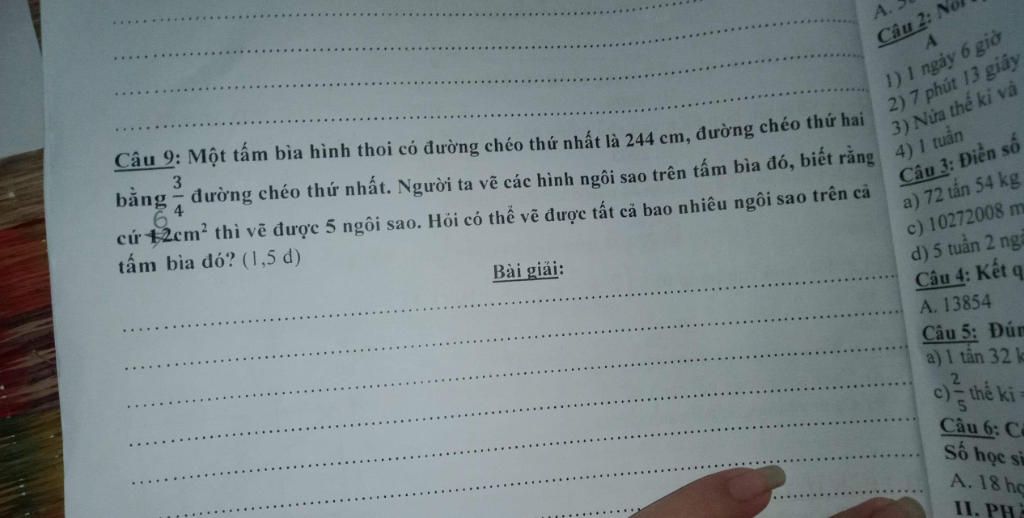 Câu 9: Một tấm bìa hình thoi có đường chéo thứ nhất là 244 cm, đường chéo thứ hai
bằng 3/4 đường chéo thứ nhất. Người ta vẽ các hình ngôi sao trên tấm bìa đó, biết rằng
6
cứ 12cm² thì vẽ được 5 ngôi sao. Hỏi có thể vẽ được tất cả bao nhiêu ngôi sao trên cả
tấm bìa đó? (1,5 đ)
Bài giải:
A.
Câu 2: Nối
A
1) 1 ngày 6 giờ
2) 7 phút 13 giây
3) Nửa thế kỉ và
4) 1 tuần
Câu 3: Điền số
a) 72 tấn 54 kg
c) 10272008 m
d) 5 tuần 2 ng
Câu 4: Kết q
A. 13854
Câu 5: Đún
a) 1 tấn 32 k
c) 2/5 thế kỉ =
Câu 6: C
Số học si
A. 18 họ
II. PH